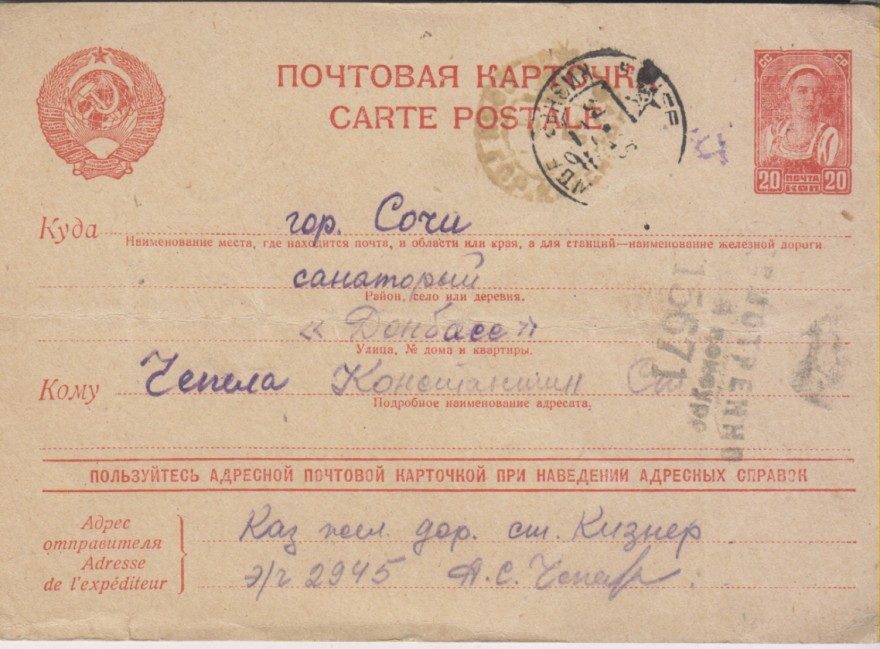 ПОЧТОВАЯ КАРТОЧКА
CARTE POSTALE
СС СР
20 ПОЧТА КОП 20
Куда гор. Сочи
Наименование места, где находится почта, и области или края, а для станций—наименование железной дороги
санаторый
Район, село или деревня.
«Донбасс»
Улица, № дома и квартиры.
Кому Чепела Константин
Подробное наименование адресата.
ПРОСМОТРЕНО
15671
ПОЛЬЗУЙТЕСЬ АДРЕСНОЙ ПОЧТОВОЙ КАРТОЧКОЙ ПРИ НАВЕДЕНИИ АДРЕСНЫХ СПРАВОК
Адрес отправителя
Adresse de l'expéditeur
Каз жел. дор. ст. Кизнер
2945 А.С.